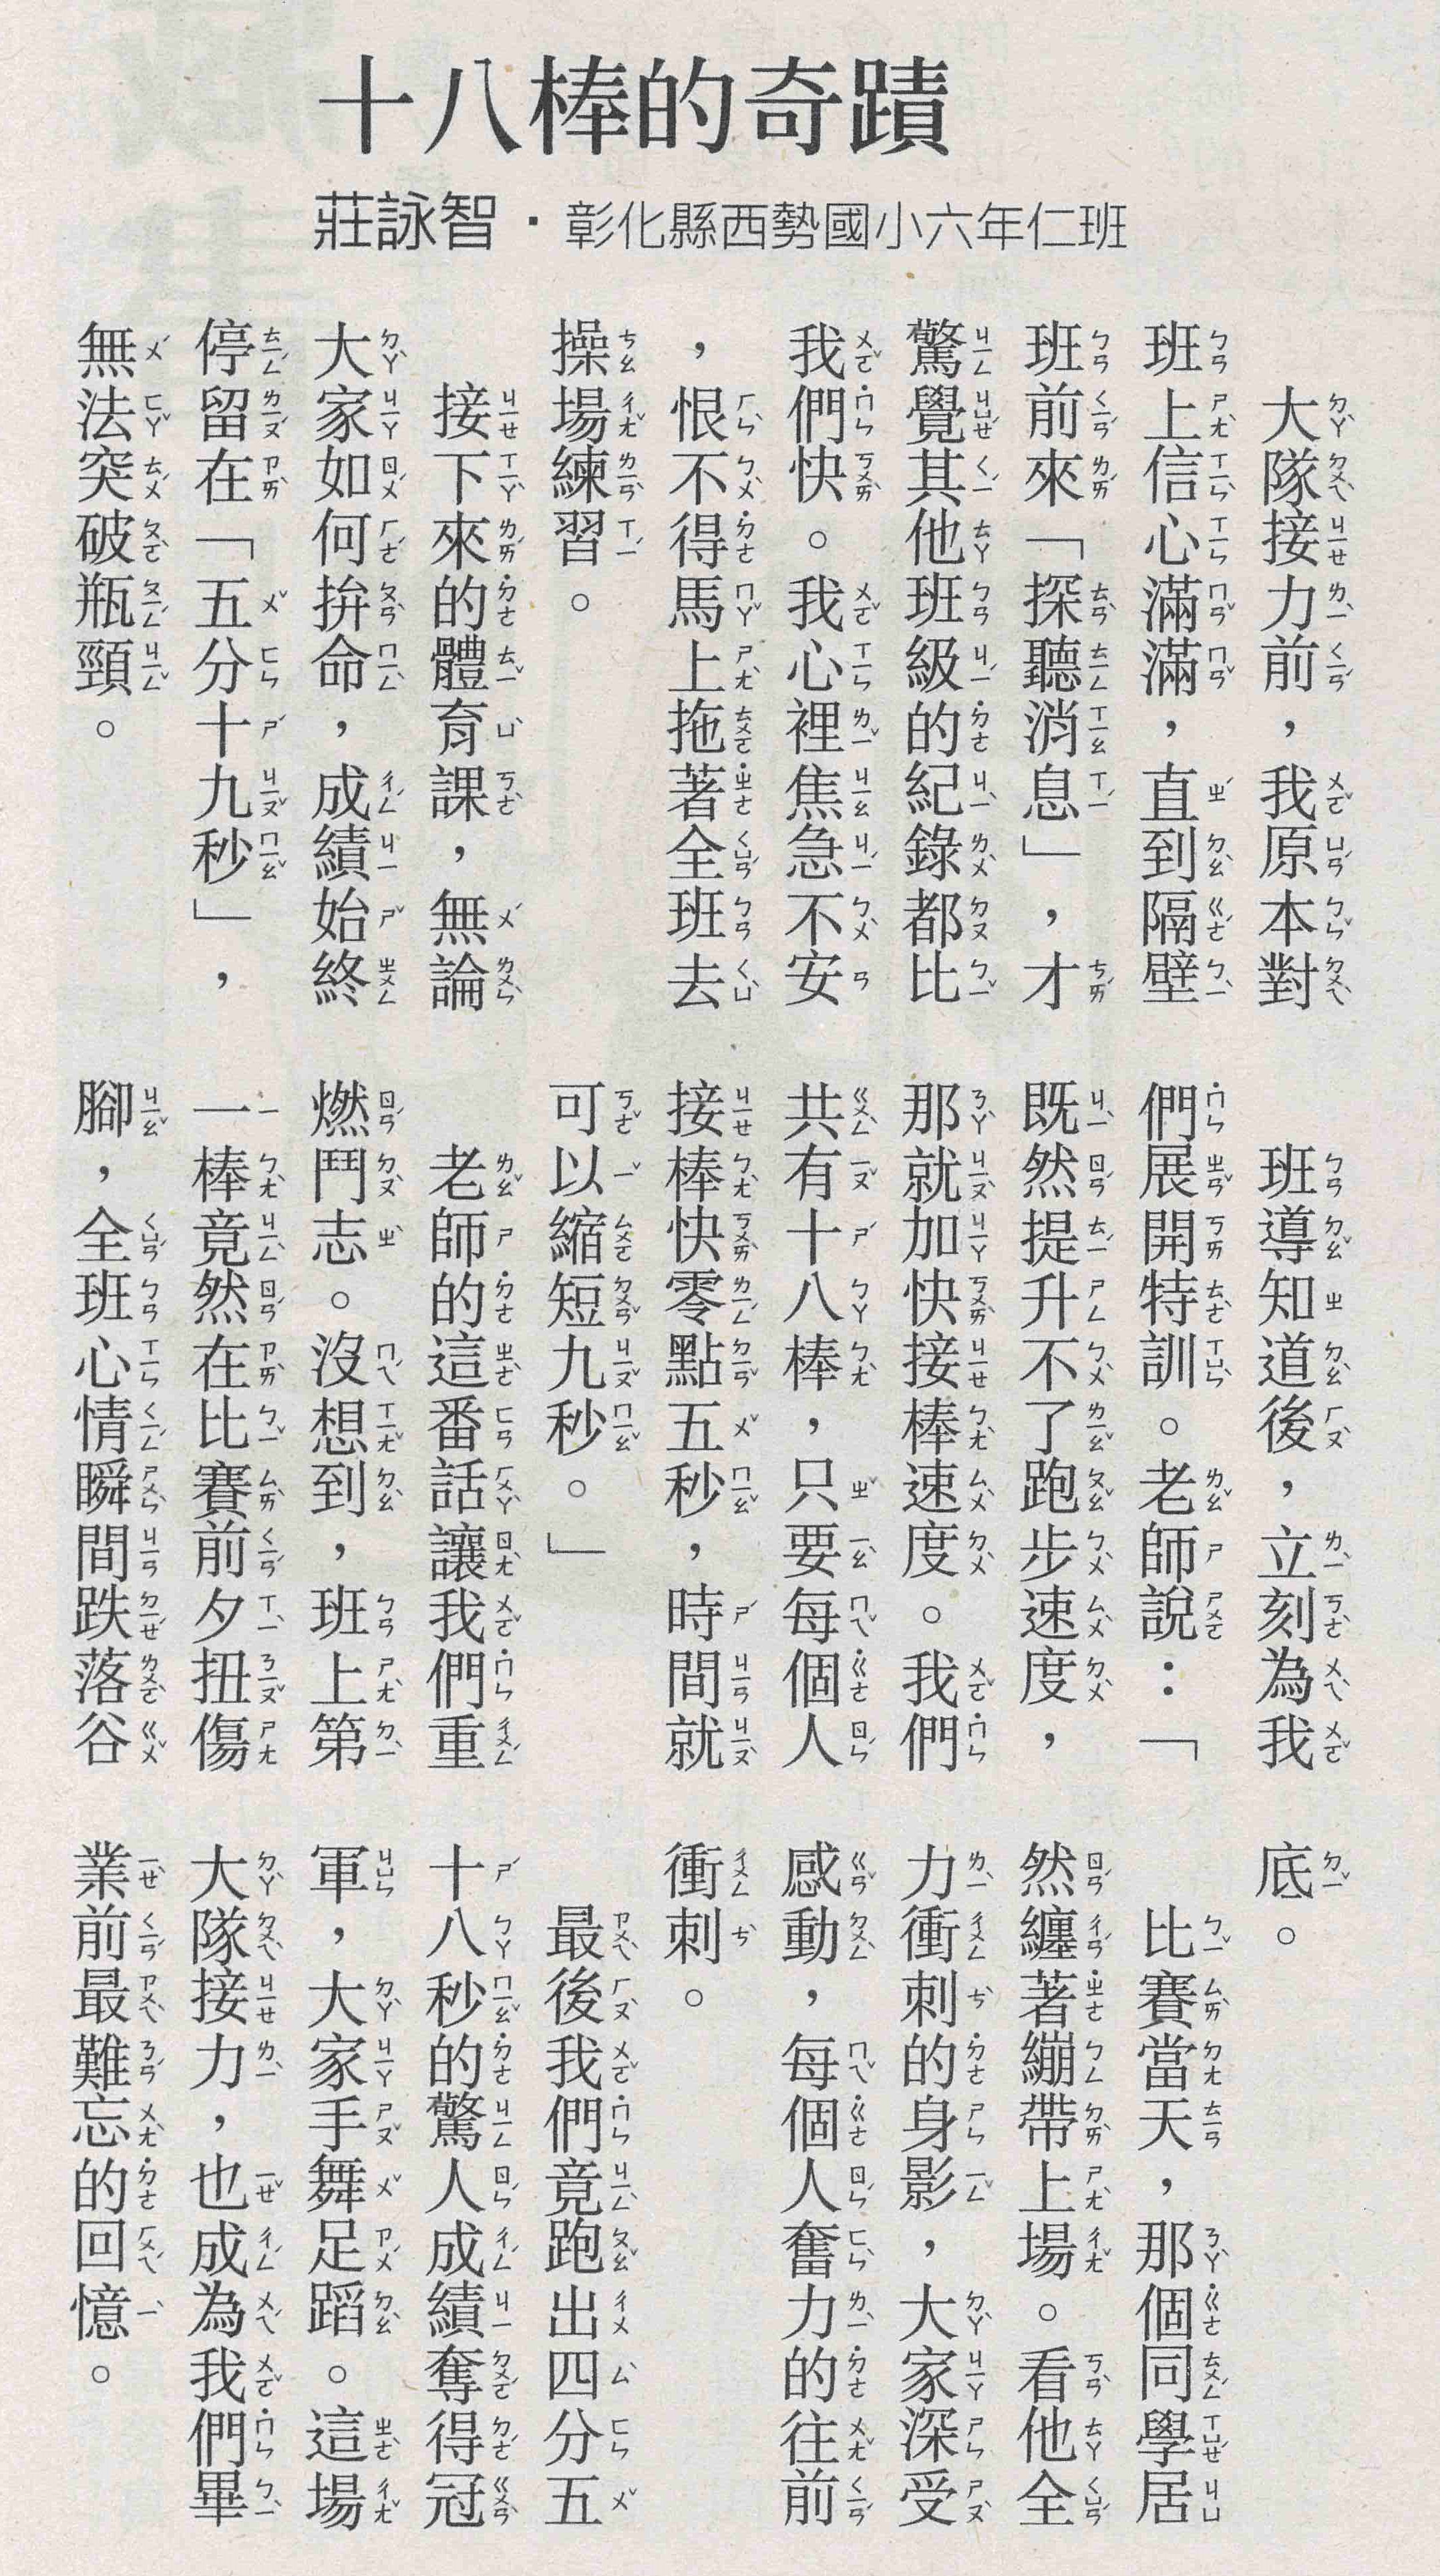 十八棒的奇蹟
莊詠智·彰化縣西勢國小六年仁班
大隊接力前，我原本對
班上信心滿滿，直到隔壁
班前來「探聽消息」，才
驚覺其他班級的紀錄都比
我們快。我心裡焦急不安
，恨不得馬上拖著全班去
操場練習。
接下來的體育課，無論
大家如何拚命，成績始終
停留在「五分十九秒」，
無法突破瓶頸。
班導知道後，立刻為我
們展開特訓。老師說：「
既然提升不了跑步速度，
那就加快接棒速度。我們
共有十八棒，只要每個人
接棒快零點五秒，時間就
可以縮短九秒。」
老師的這番話讓我們重
燃鬥志。沒想到，班上第
一棒竟然在比賽前夕扭傷
腳，全班心情瞬間跌落谷
底。
比賽當天，那個同學居
然纏著繃帶上場。看他全
力衝刺的身影，大家深受
感動，每個人奮力的往前
衝刺。
最後我們竟跑出四分五
十八秒的驚人成績奪得冠
軍，大家手舞足蹈。這場
大隊接力，也成為我們畢
業前最難忘的回憶。